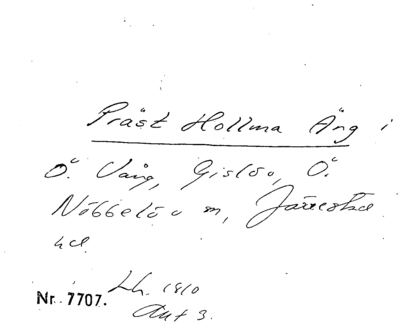 Präst Hollma Äng i
Ö. Vång, Gislöv, Ö.
Nöbbelöv m, Järrestad
hd
Lh. 1810
Akt 3.
Nr. 7707.